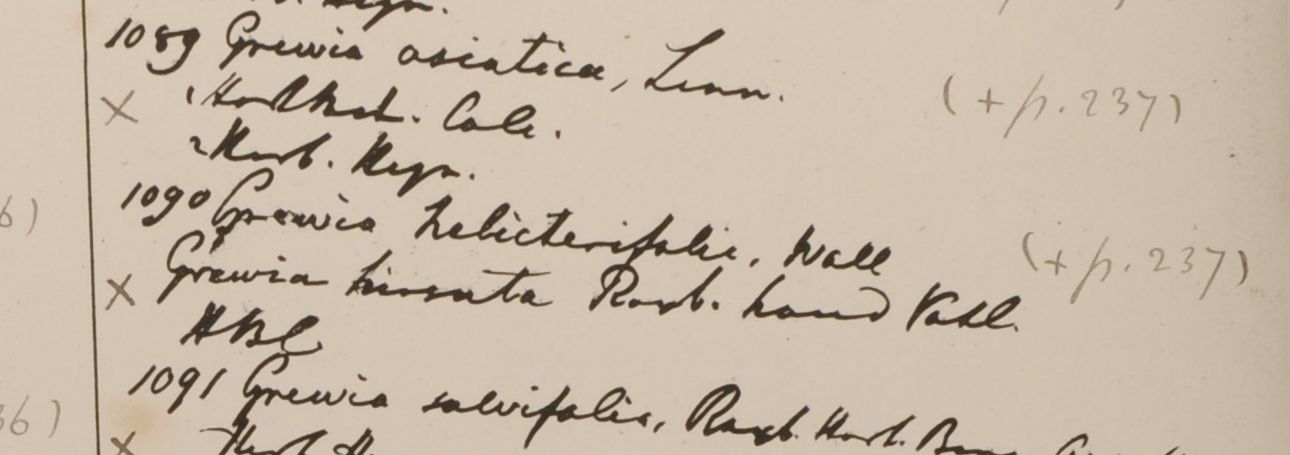 1089 Grewia asiatica, Linn. (+ p. 237)
× 1 Hort. Bot. Calc.
2 Herb. Heyn.
1090 Grewia helicterifolia, Wall (+ p. 237)
× Grewia hirsuta Roxb. haud Vahl.
HBC
1091 Grewia salvifolia, Roxb. Hort. Beng.
× Herb.
6)
36)